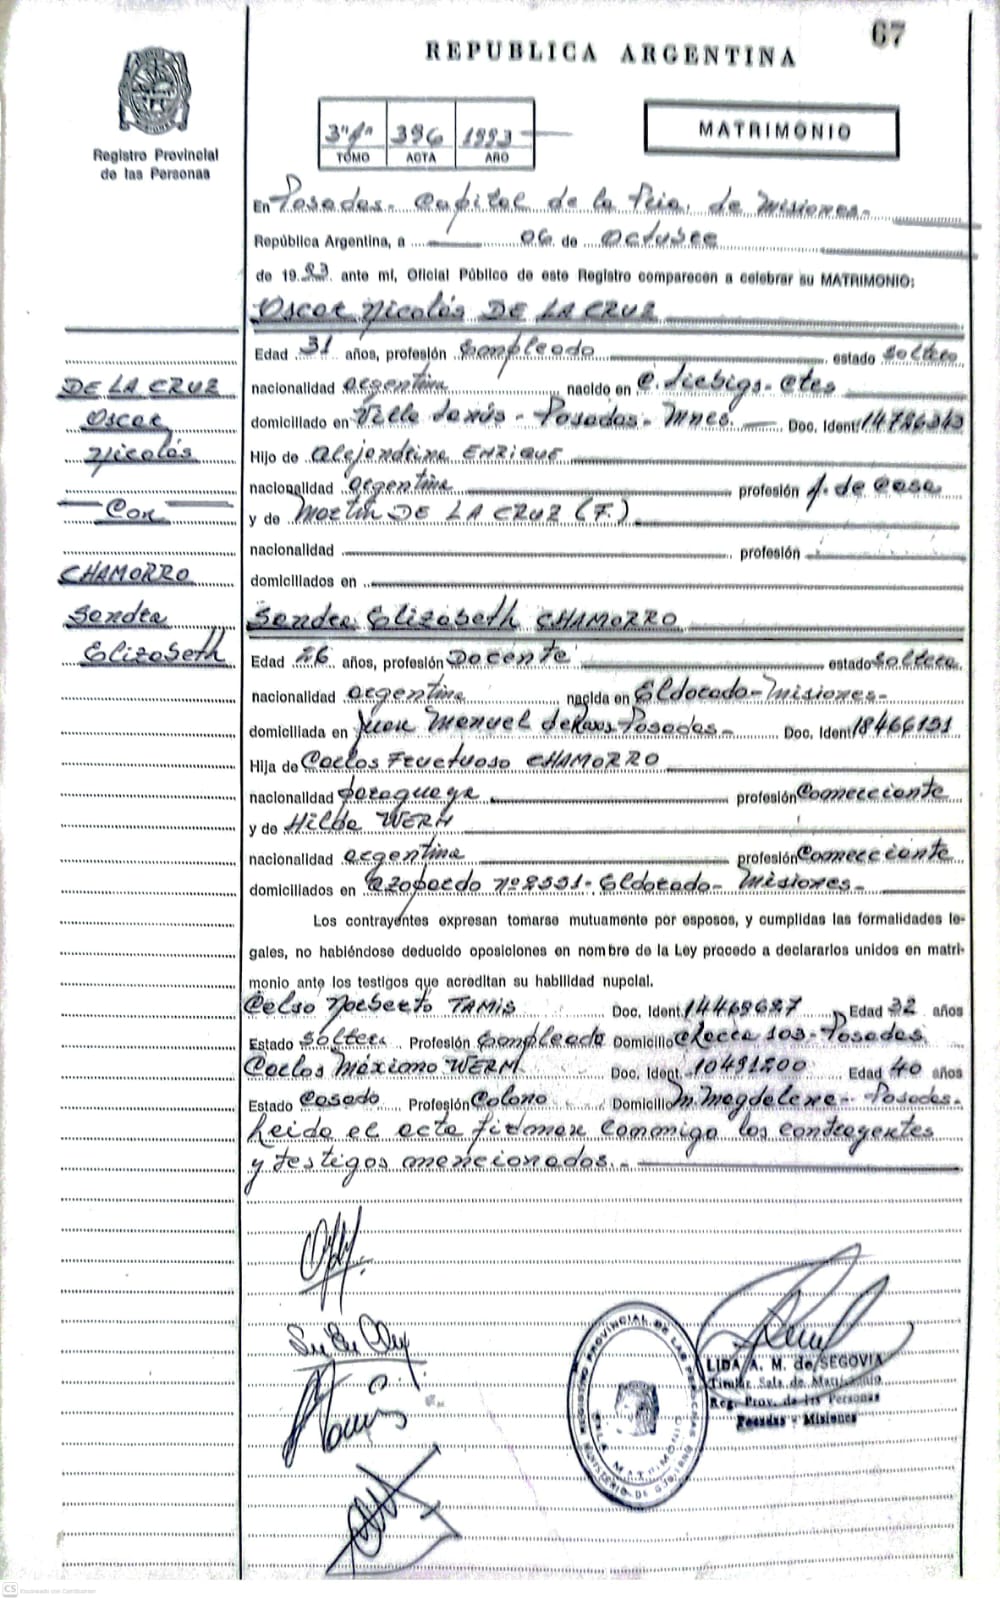 67
REPUBLICA ARGENTINA
MISIONES
Registro Provincial
de las Personas
3º 396 1993
TOMO ACTA AÑO
MATRIMONIO
En Posadas - Capital de la Pcia. de Misiones -
República Argentina, a 06 de Octubre
de 1993 ante mi, Oficial Público de este Registro comparecen a celebrar su MATRIMONIO:
Oscar Nicolás DE LA CRUZ
Edad 31 años, profesión Empleado estado Soltero
nacionalidad argentina nacido en C. Liebigs - Ctes
domiciliado en Villa Lanús - Posadas - Mnes. Doc. Ident.
Hijo de Alejandrina ENRIQUE
nacionalidad argentina profesión A. de Casa
y de Martín DE LA CRUZ (F.)
nacionalidad profesión
domiciliados en
DE LA CRUZ
Oscar
Nicolás
Con
CHAMORRO
Sandra
Elizabeth
Sandra Elizabeth CHAMORRO
Edad 26 años, profesión Docente estado Soltera
nacionalidad argentina nacida en Eldorado - Misiones -
domiciliada en Juan Manuel de Rosas - Posadas - Doc. Ident. 18466191
Hija de Carlos Fructuoso CHAMORRO
nacionalidad paraguaya profesión Comerciante
y de Hilda WERM
nacionalidad argentina profesión Comerciante
domiciliados en Azopardo nº - Eldorado - Misiones -
Los contrayentes expresan tomarse mutuamente por esposos, y cumplidas las formalidades le-
gales, no habiéndose deducido oposiciones en nombre de la Ley procedo a declararlos unidos en matri-
monio ante los testigos que acreditan su habilidad nupcial.
Celso Norberto TAMIS Doc. Ident. Edad 32 años
Estado Soltero Profesión Empleado Domicilio Chacra 103 - Posadas
Carlos Máximo WERM Doc. Ident. 10491200 Edad 40 años
Estado Casado Profesión Colono Domicilio M. Magdalena - Posadas -
Leida el acta firman conmigo los contrayentes
y testigos mencionados. -
REGISTRO PROVINCIAL DE LAS PERSONAS
SALA MATRIMONIO
MINISTERIO DE GOBIERNO
LIDA A. M. de SEGOVIA
Titular Sala de Matrimonio
Reg. Prov. de las Personas
Posadas - Misiones
CS Escaneado con CamScanner